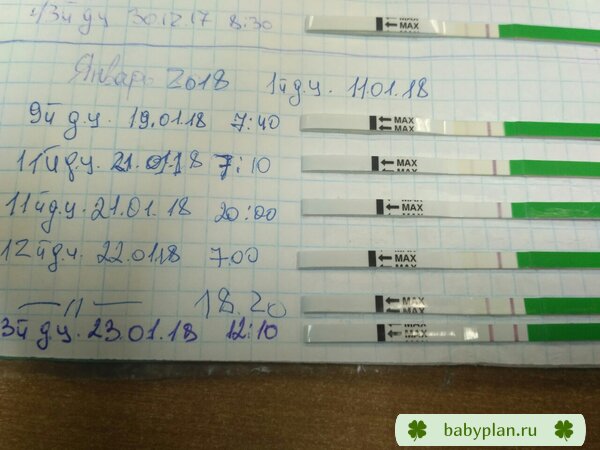 13й ду 30.12.17 8:30
MAX
MAX
Январь 2018 1й д.ц. 11.01.18
9й д.ц. 19.01.18 7:40
MAX
MAX
11й д.ц. 21.01.18 7:10
MAX
MAX
11й д.ц. 21.01.18 20:00
MAX
12й д.ц. 22.01.18 7.00
MAX
MAX
— // — 18.20
MAX
MAX
3й д.ц. 23.01.18 12:10
MAX
MAX
babyplan.ru